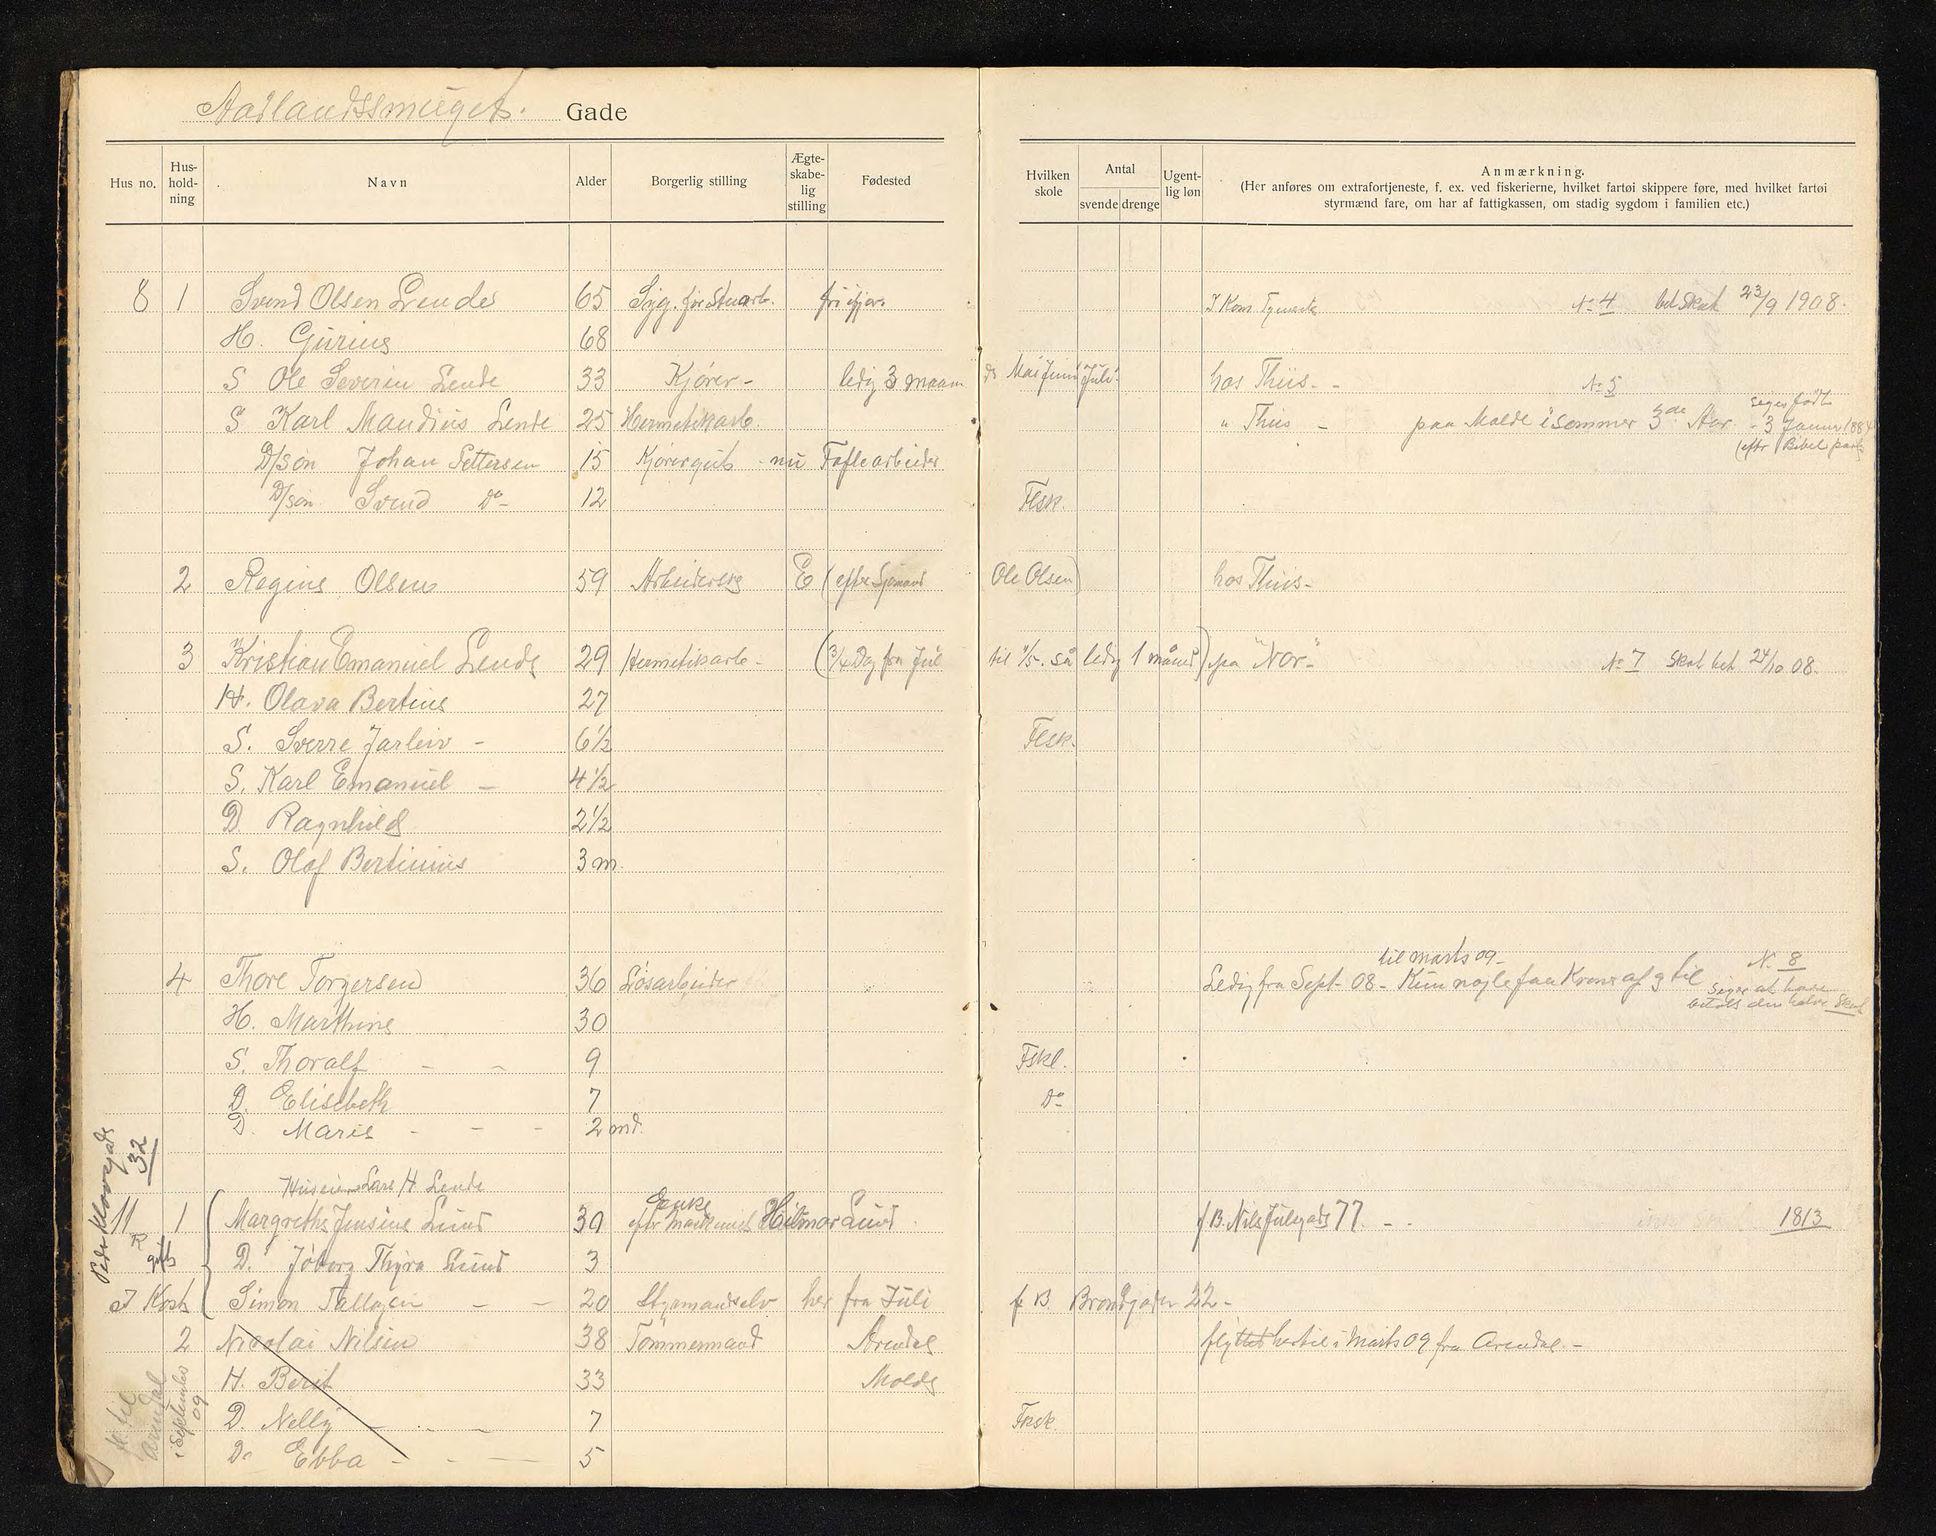 Aarlandssmuget. Gade
Hus no. Hus-hold-ning Navn Alder Borgerlig stilling Ægte-skabe-lig stilling Fødested Hvilken skole Antal svende drenge Ugent-lig løn Anmærkning.
(Her anføres om extrafortjeneste, f. ex. ved fiskerierne, hvilket fartøi skippere føre, med hvilket fartøi
styrmænd fare, om har af fattigkassen, om stadig sygdom i familien etc.)
8 1 Svend Olsen Lende 65 Syg. før Stuarb. No 4 bet Skat 23/9 1908.
H. Gurine 68
S Ole Severin Lende 33 Kjører - ledig 3 maan Mai Juni Juli hos Thiis - - No 5
S Karl Maudius Lende 25 Hermetikarb. " Thiis - paa Molde i sommer 3de Aar. siges født - 3 Januar 1884 (eftr Bibel
D/søn Johan Pettersen 15 Kjørergut - nu Tøflearbeider
D/søn Svend Do - 12 Flsk.
2 Regine Olsen 59 Arbeiderske E (efter Sjømand Ole Olsen) hos Thiis -
3 Kristian Emanuel Lende 29 Hermetikarb - (3/4 Dag fra Jul til 1/5. så ledig 1 måned) paa "Nor" No 7 Skat bet 24/10 08.
H. Olava Bertine 27
S. Sverre Jarleiv - 6 1/2 Flsk.
S. Karl Emanuel - 4 1/2
D. Ragnhild 2 1/2
S. Olaf Bertinius 3 m.
4 Thore Torgersen 36 Løsarbeider Ledig fra Sept. 08 - til marts 09 - Kun nogle faa Kroner af g til N. 8 siger at have betalt den halve Skat
H. Marthine 30
S. Thoralf - - 9 Fskl.
D. Elisebeth 7 Do
D. Marie - - - 2 md.
Peder Klovsgade 32
Huseier Lars H Lende
11 1 Margrethe Jensine Lund 30 Enke efter Maskinist Hilmar Lund. f B. Nils Juelsgade 77. - - 1813
D. Jøborg Thyra Lund 3
I Kost Simon Tallagsen - - 20 Styrmandselv her fra Juli f B. Brøndgaden 22 -
2 Nicolai Nilsen 38 Tømmermand Arendal flyttet hertil i Marts 09 fra Arendal. -
H. Berit 33 Molde
D. Nelly - - - 7 Frsk.
Do Ebba - - - 5
fl. til Arendal i September 09